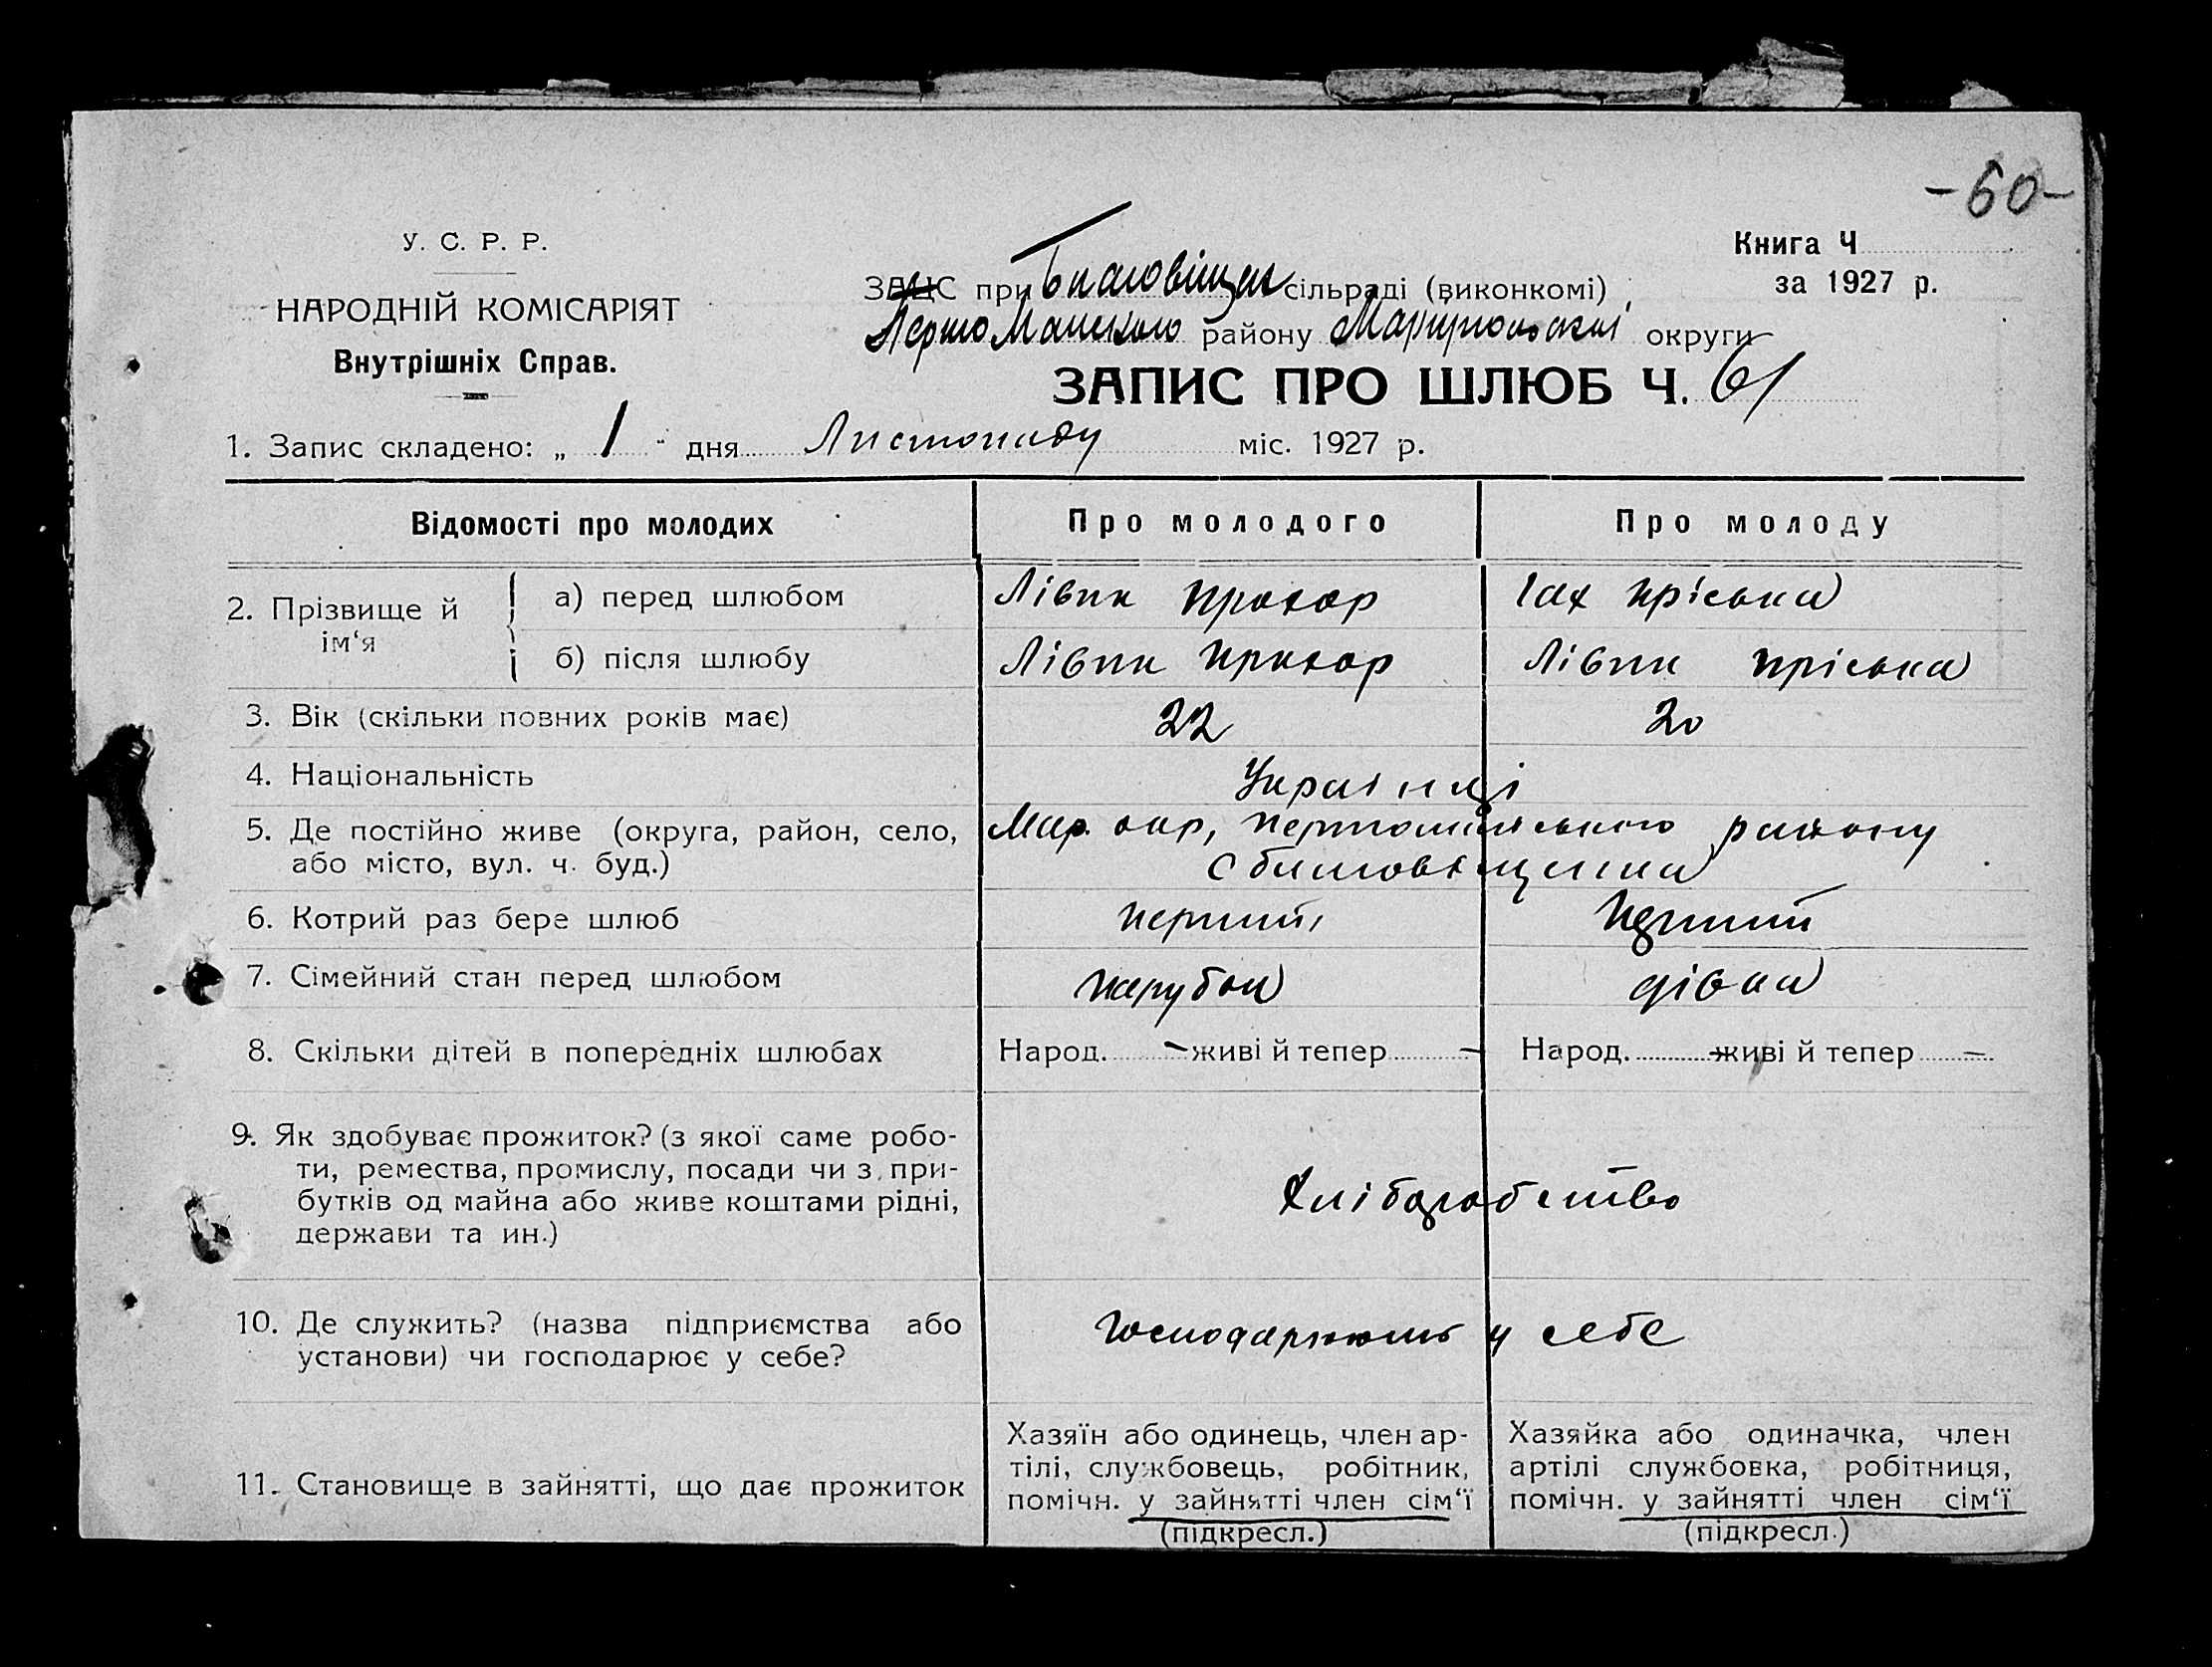 -60-
У. С. Р. Р.
НАРОДНІЙ КОМІСАРІЯТ
Внутрішніх Справ.
Книга Ч
за 1927 р.
ЗАЦС при Благовіщен сільраді (виконкомі)
Першо Майського району Маріупольської округи
ЗАПИС ПРО ШЛЮБ Ч. 61
1. Запис складено: „ 1 " дня Листопаду міс. 1927 р.
Відомості про молодих Про молодого Про молоду
2. Прізвище й ім‘я
а) перед шлюбом Лівик Прохор Пріська
б) після шлюбу Лівик Прохор Лівик Пріська
3. Вік (скільки повних років має) 22 20
4. Національність Українці
5. Де постійно живе (округа, район, село, Мар. окр, Першомайського району
або місто, вул. ч. буд.) с Благовіщенка
6. Котрий раз бере шлюб перший перший
7. Сімейний стан перед шлюбом парубок дівка
8. Скільки дітей в попередніх шлюбах Народ. — живі й тепер — Народ. — живі й тепер —
9. Як здобуває прожиток? (з якої саме робо-
ти, ремества, промислу, посади чи з при-
бутків од майна або живе коштами рідні,
держави та ин.)
Хліборобство
10. Де служить? (назва підприємства або
установи) чи господарює у себе?
Господарюють у себе
11. Становище в зайнятті, що дає прожиток
Хазяїн або одинець, член ар-
тілі, службовець, робітник,
помічн. у зайнятті член сім‘ї
(підкресл.)
Хазяйка або одиначка, член
артілі службовка, робітниця,
помічн. у зайнятті член сім‘ї
(підкресл.)